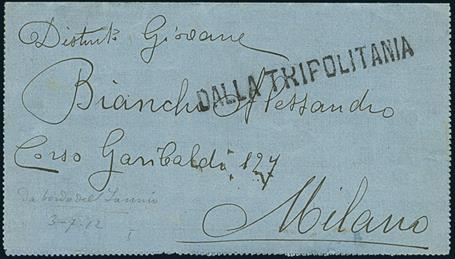 Distinto Giovane
DALLA TRIPOLITANIA
Bianchi Alessandro
Corso Garibaldi 127
da bordo del Sannio
3-7-12
Milano